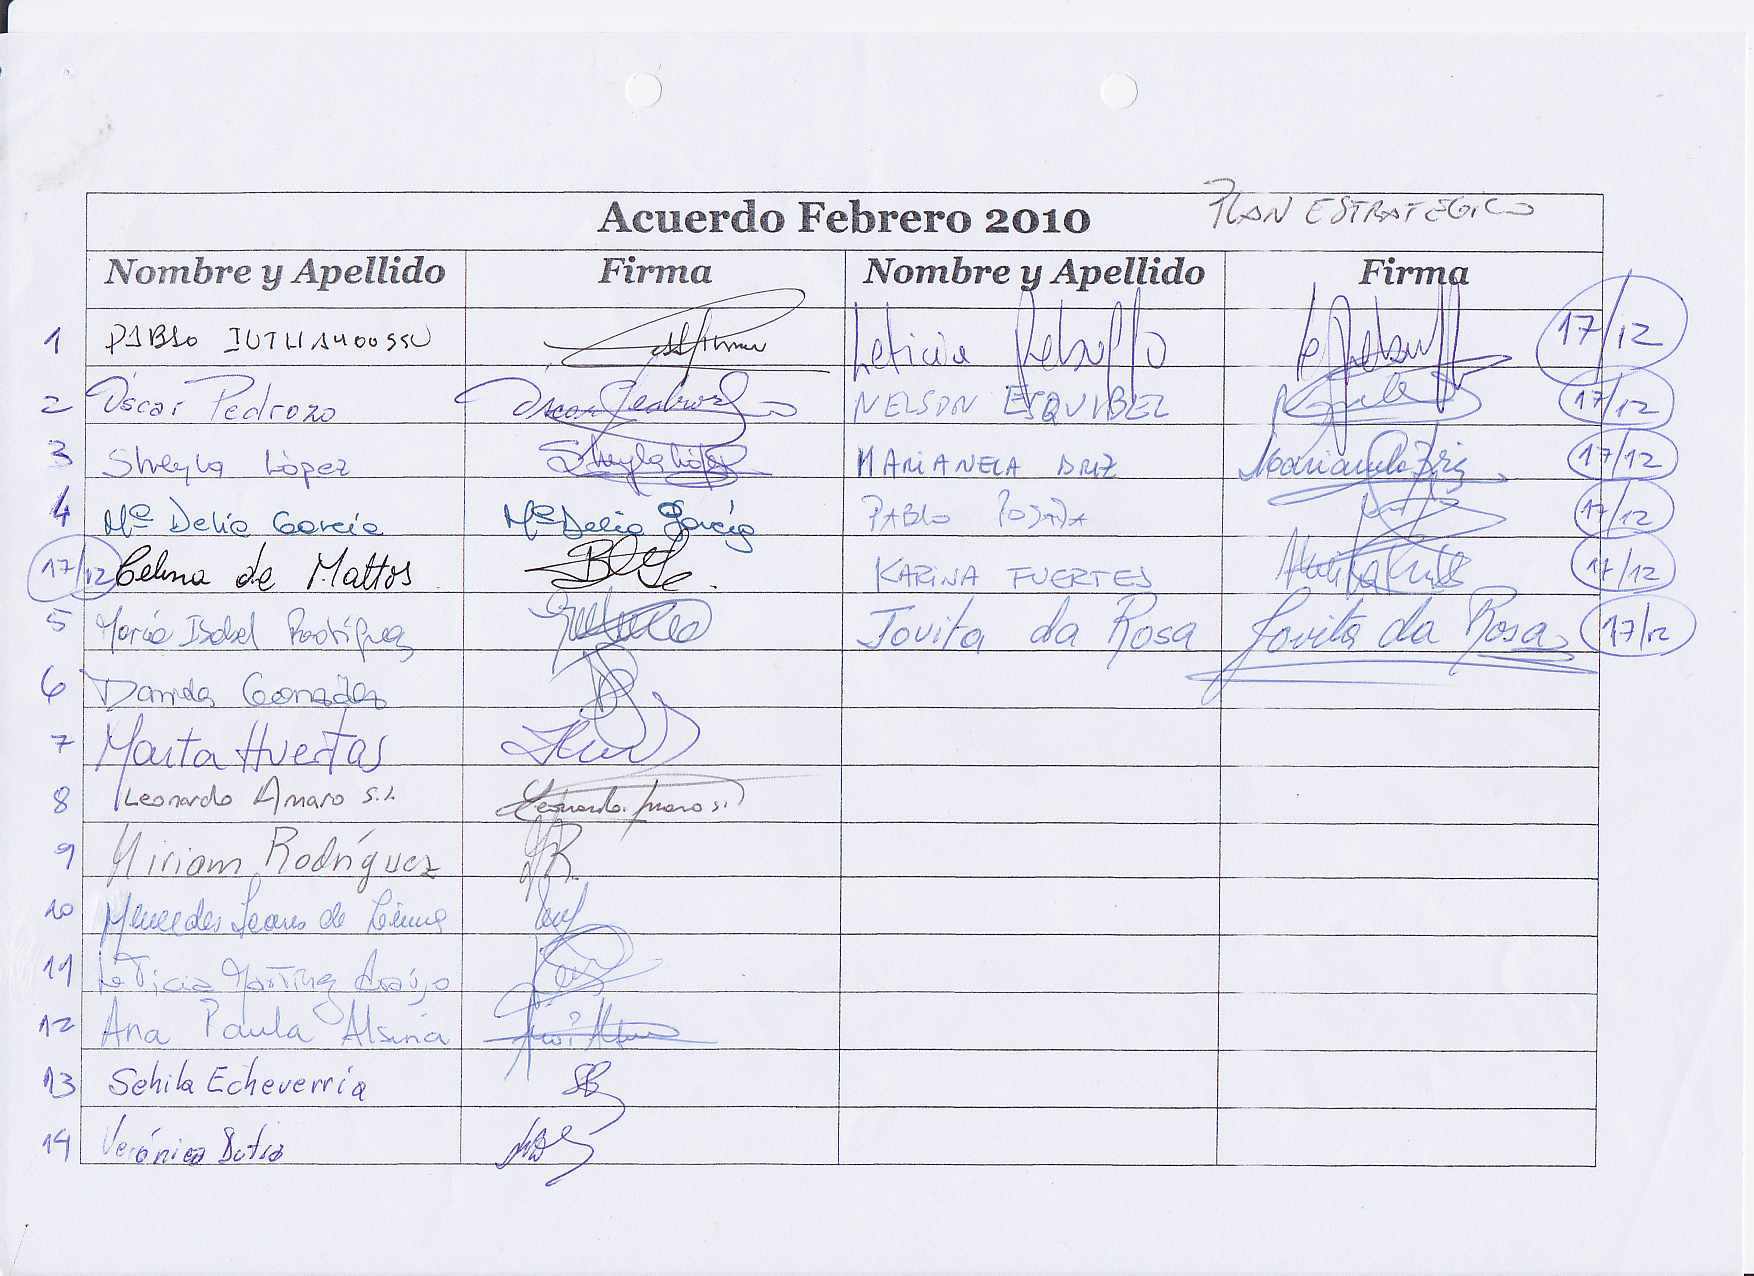 Acuerdo Febrero 2010 PLAN ESTRATEGICO
Nombre y Apellido Firma Nombre y Apellido Firma
1 PABLO Leticia 17/12
2 Óscar Pedrozo NELSON ESQUIBEL 17/12
3 Sheyla López Sheyla López MARIANELA BRIZ 17/12
4 Mª Delia García Mª Delia García PABLO POSADA 17/12
17/12 Celina de Mattos KARINA FUERTES 17/12
5 María Isabel Rodríguez Jovita da Rosa Jovita da Rosa 17/12
6 Daniela González
7 Marta Huertas
8 Leonardo Amaro S.L
9 Miriam Rodríguez
10 Mercedes Soares de Lima
11 Leticia Martínez Araújo
12 Ana Paula Alsina
13 Sehila Echeverría
14 Verónica Dutra